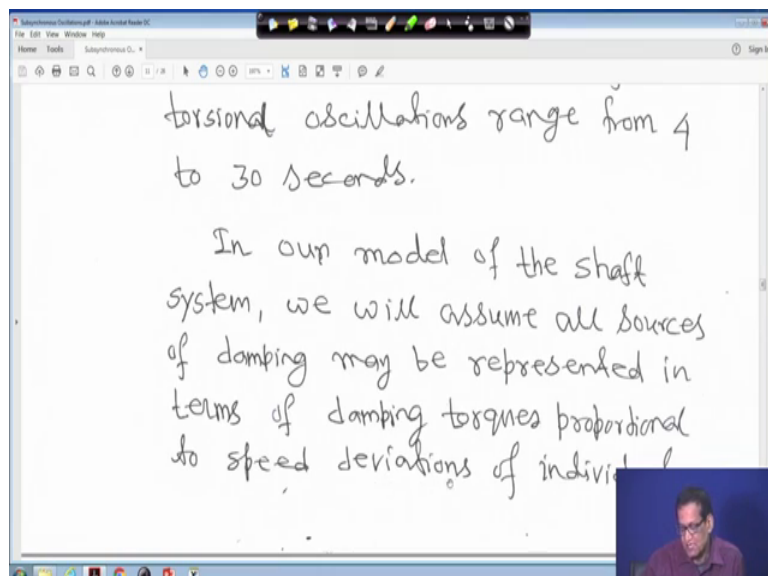 Subsynchronous Oscillations.pdf - Adobe Acrobat Reader DC
File Edit View Window Help
Home Tools Subsynchronous O... Sign In
torsional oscillations range from 4
to 30 seconds.
In our model of the shaft
system, we will assume all sources
of damping may be represented in
terms of damping torques proportional
to speed deviations of